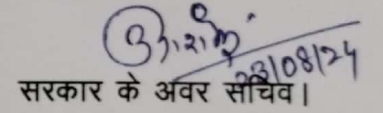 23/08/24
सरकार के अवर सचिव।